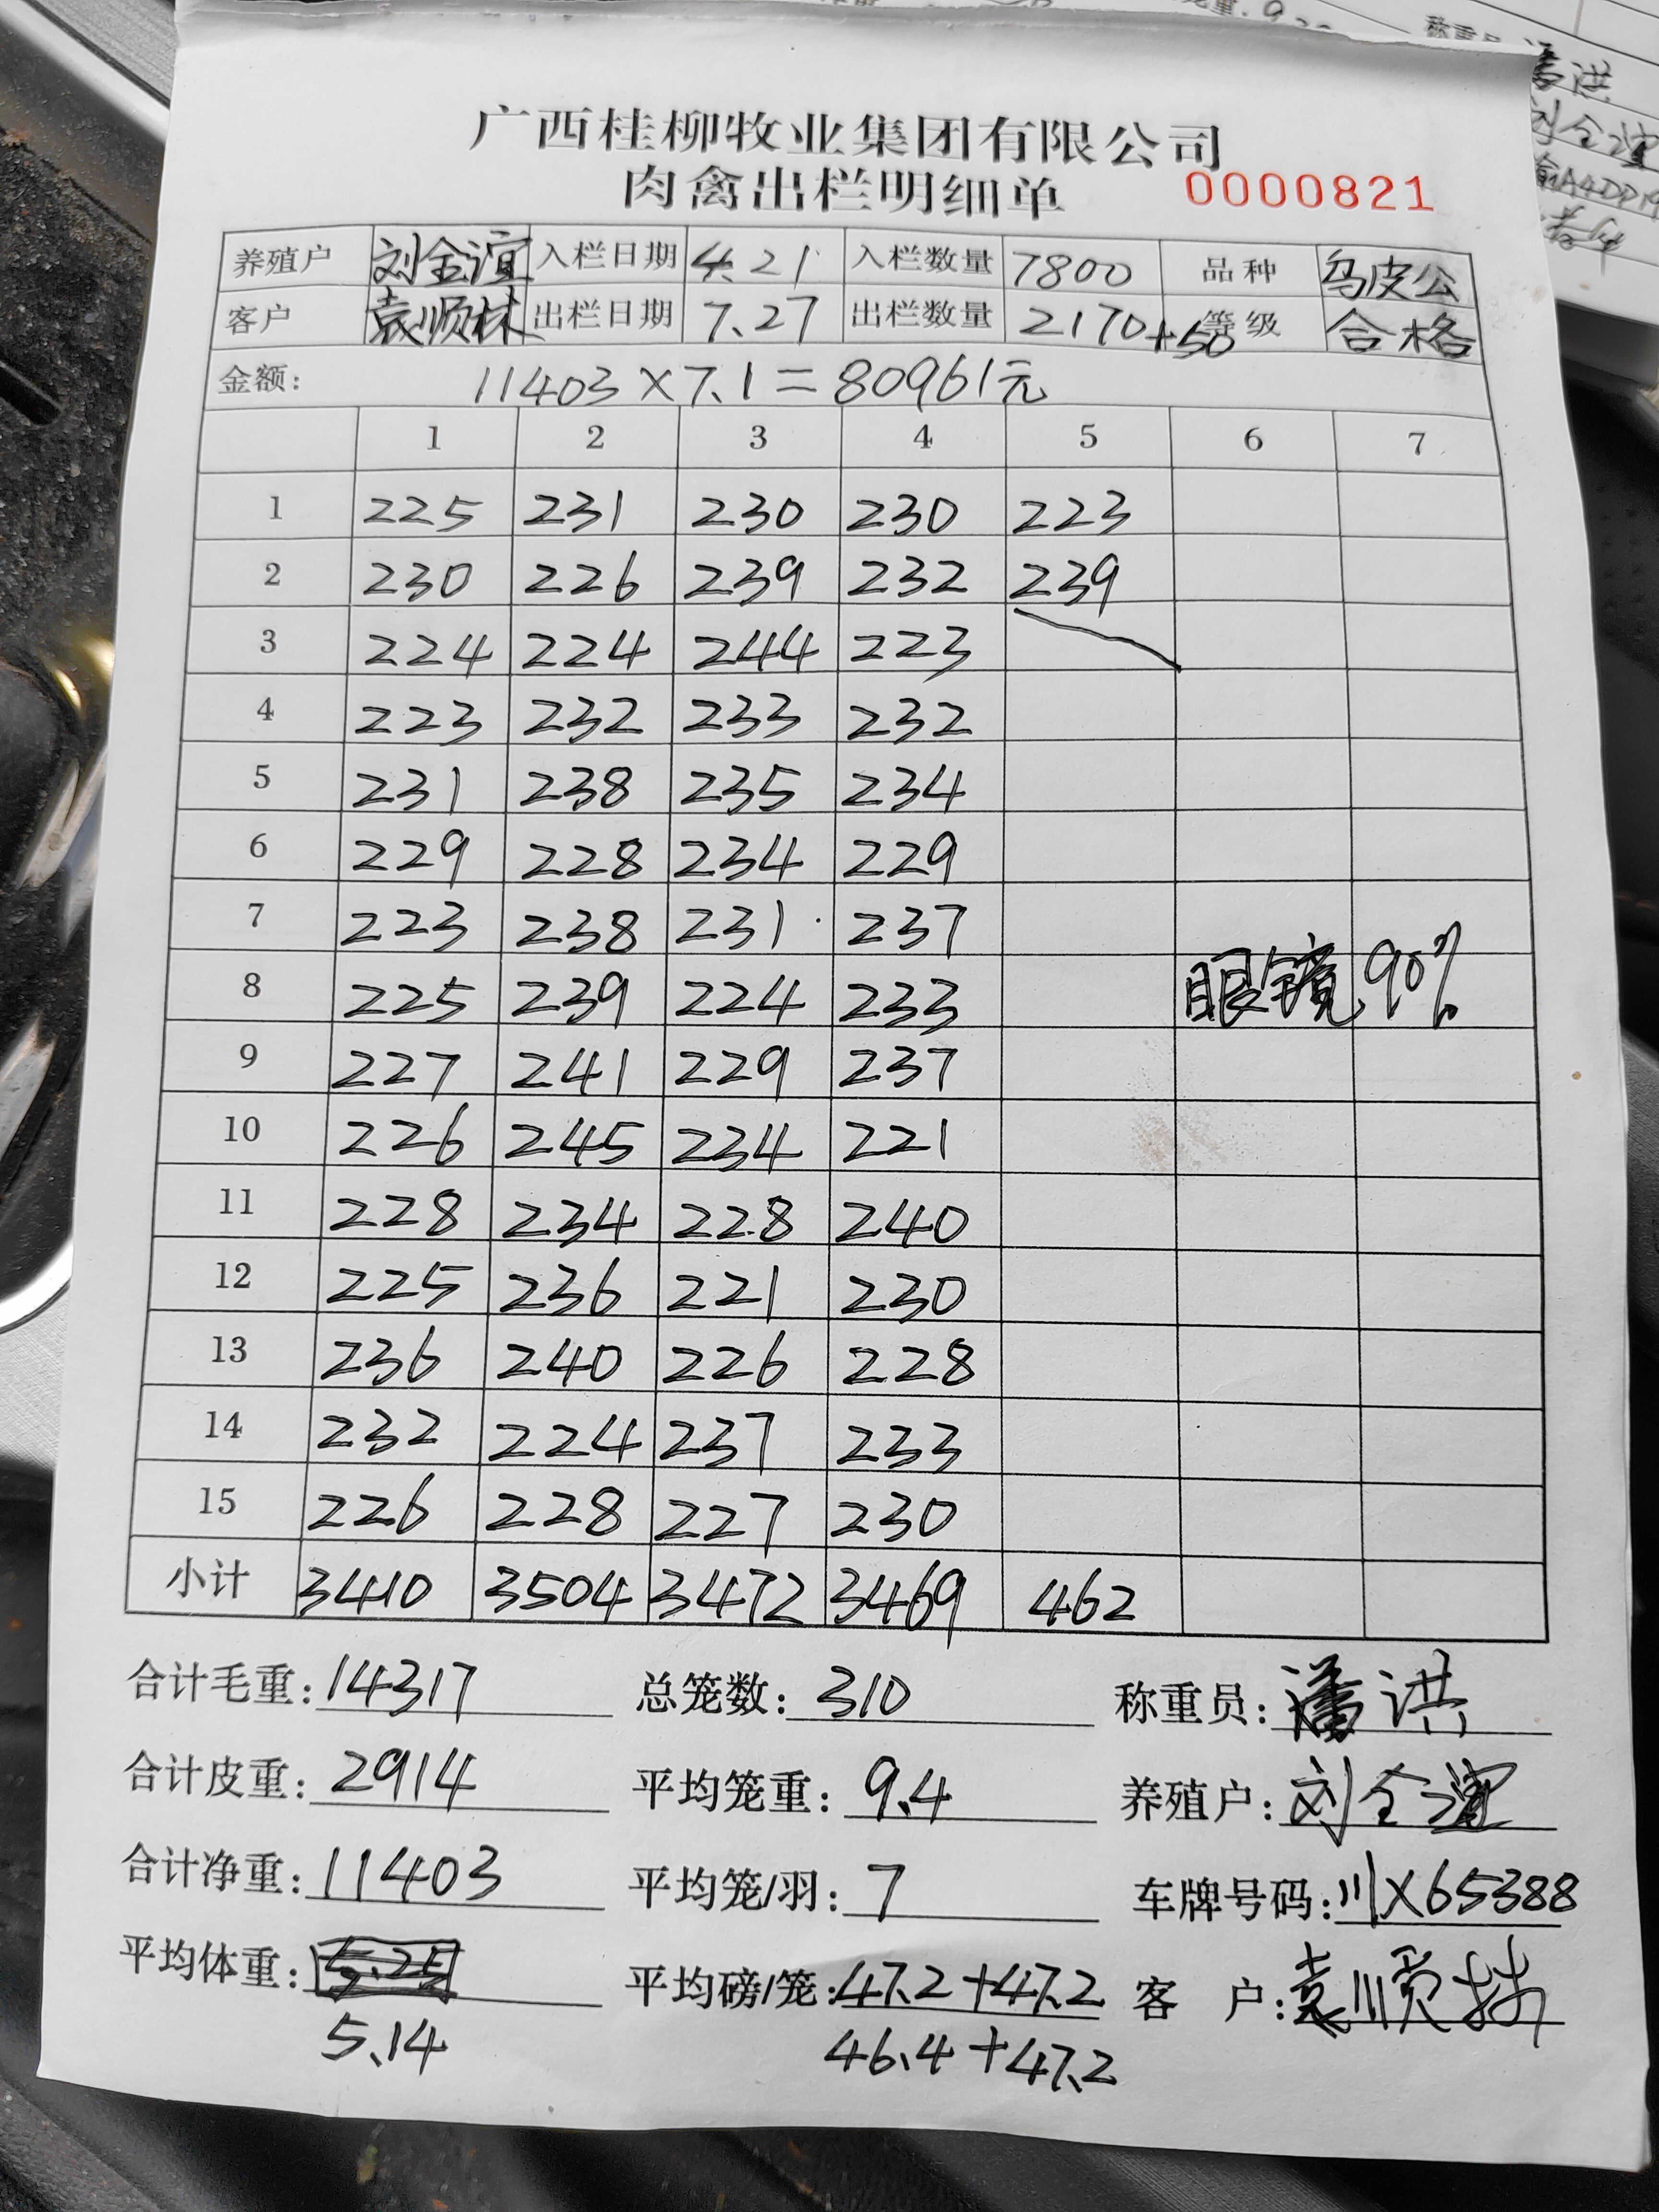 广西桂柳牧业集团有限公司
肉禽出栏明细单 0000821
养殖户 刘金谊 入栏日期 4.21 入栏数量 7800 品种 乌皮公
客户 袁顺林 出栏日期 7.27 出栏数量 2170+50 等级 合格
金额: 11403×7.1=80961元
1 2 3 4 5 6 7
1 225 231 230 230 223
2 230 226 239 232 239
3 224 224 244 223
4 223 232 233 232
5 231 238 235 234
6 229 228 234 229
7 223 238 231 237
8 225 239 224 233 眼镜90%
9 227 241 229 237
10 226 245 234 221
11 228 234 228 240
12 225 236 221 230
13 236 240 226 228
14 232 224 237 233
15 226 228 227 230
小计 3410 3504 3472 3469 462
合计毛重: 14317 总笼数: 310 称重员: 潘洪
合计皮重: 2914 平均笼重: 9.4 养殖户: 刘金谊
合计净重: 11403 平均笼/羽: 7 车牌号码: 川X65388
平均体重: 5.25 平均磅/笼: 47.2+47.2 客 户: 袁顺林
5.14 46.4+47.2